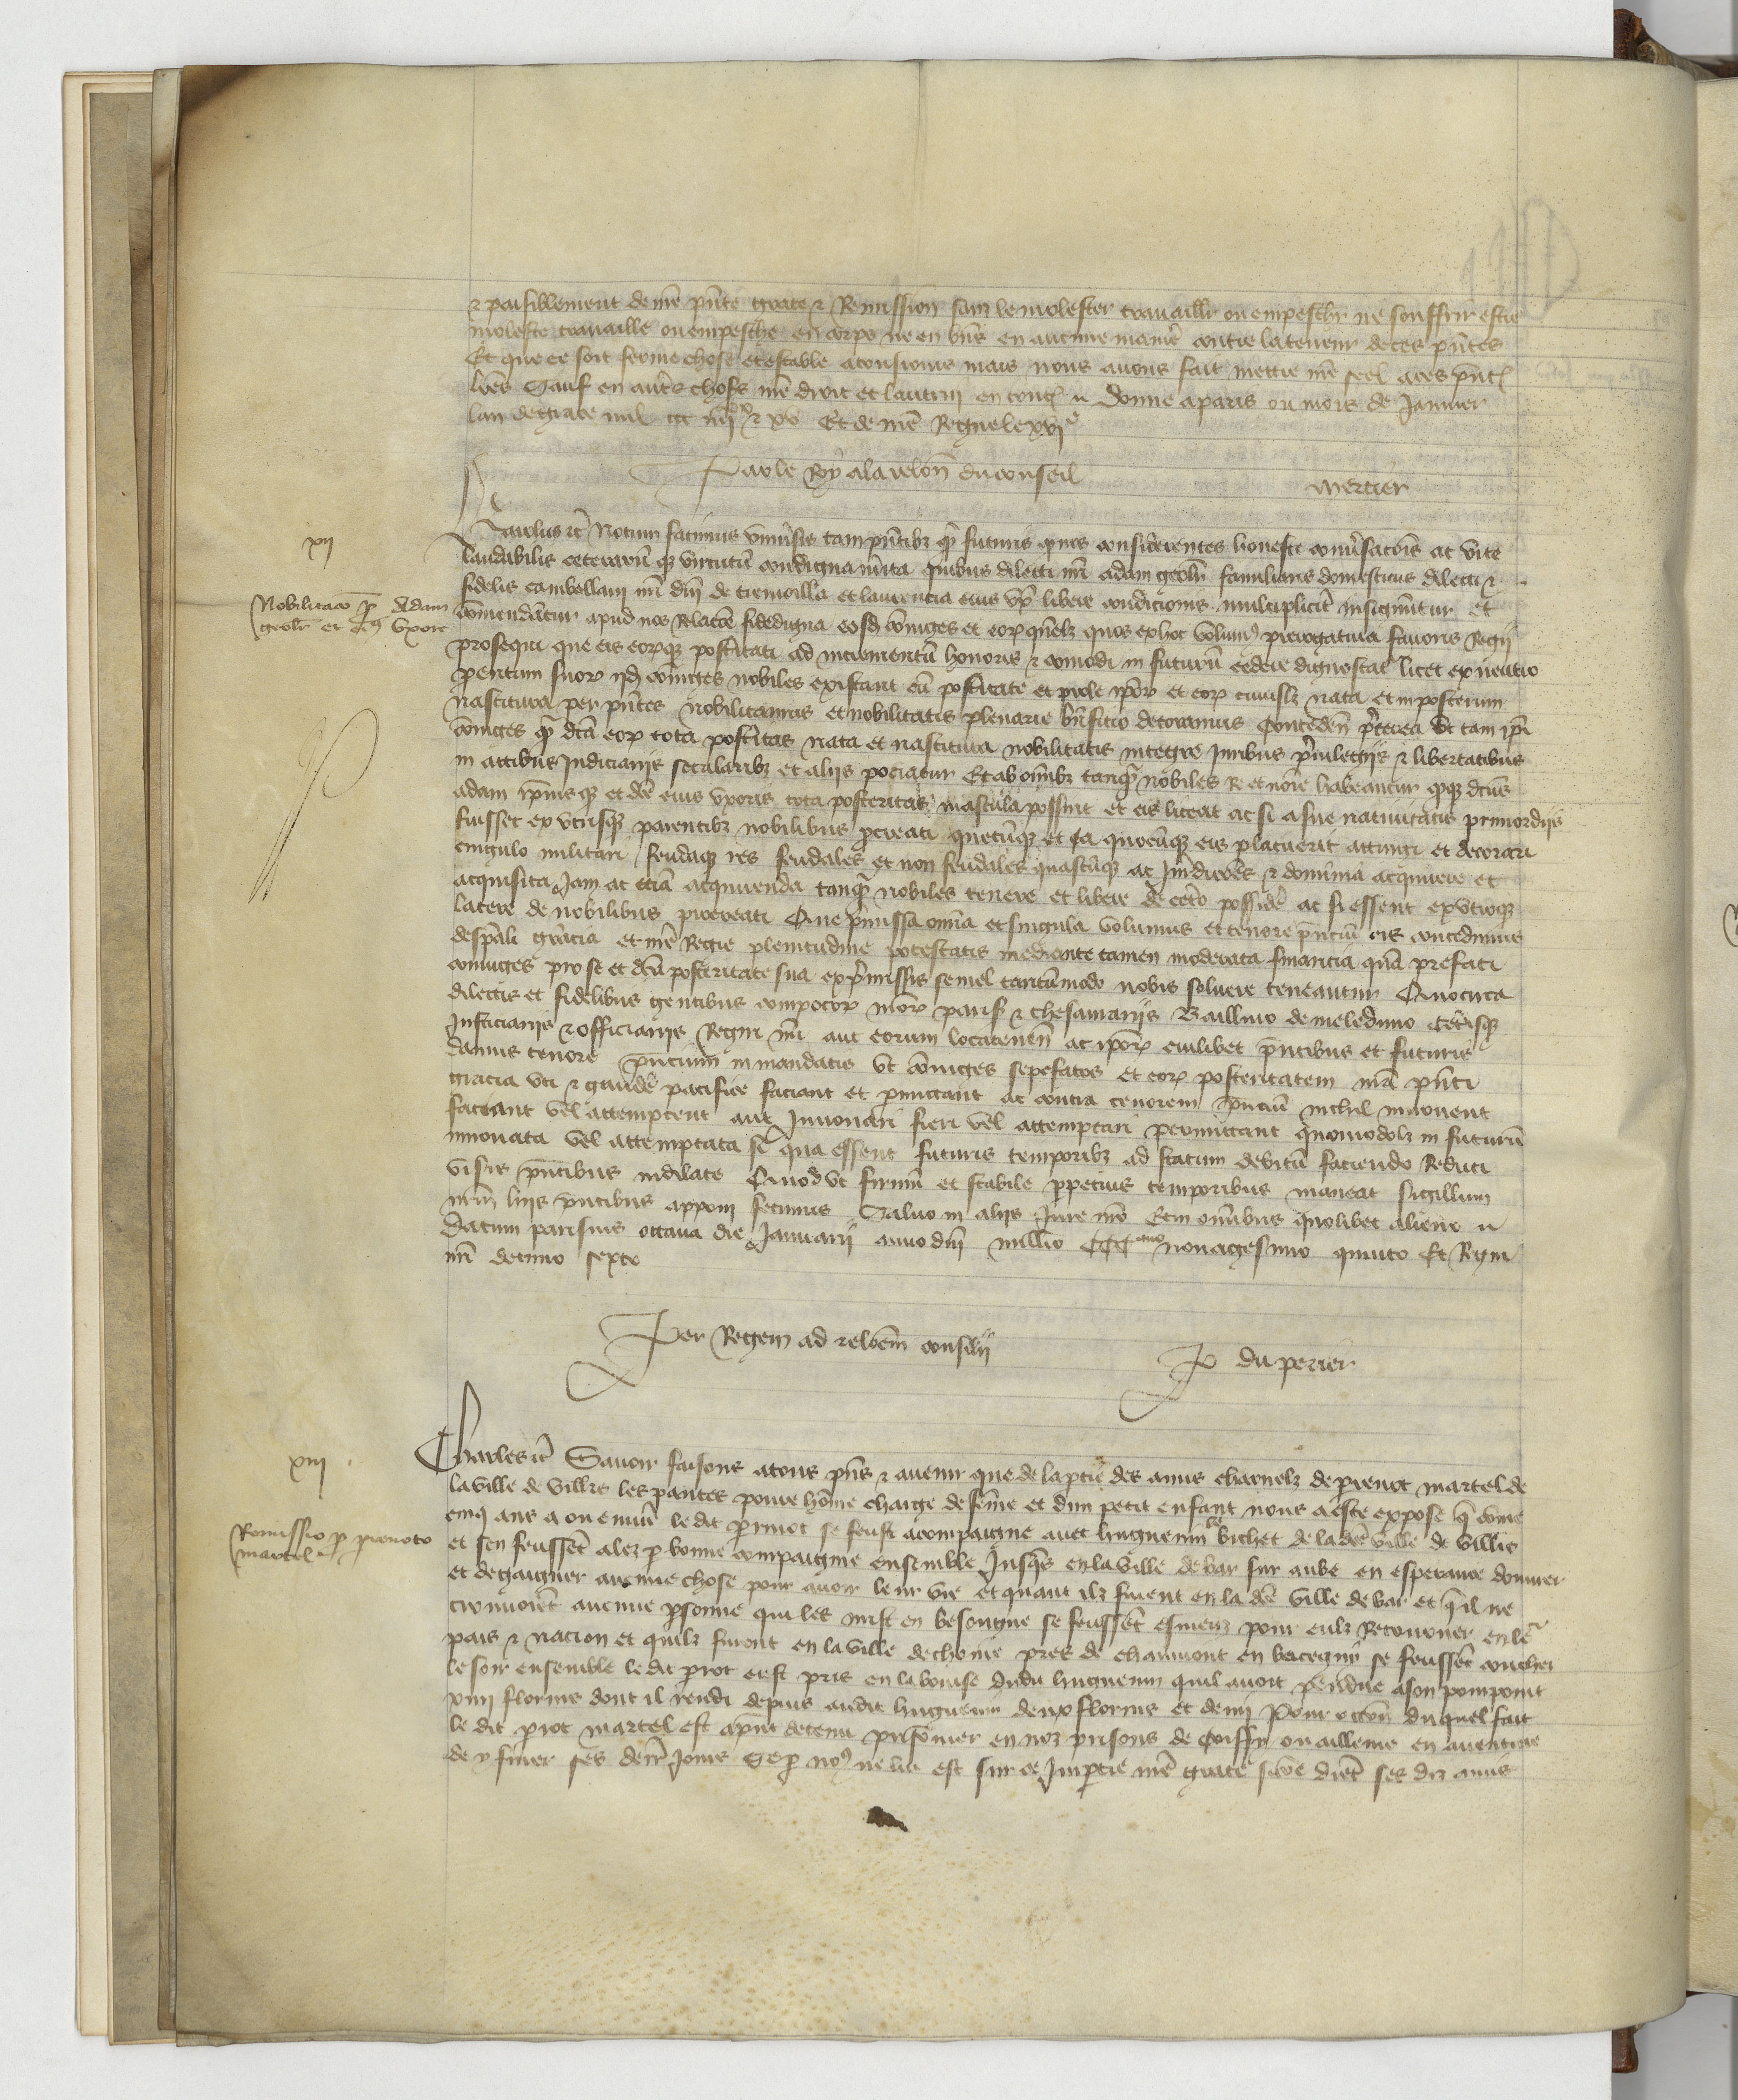 & paisiblement de nre pñte grace & Remission sanz le molester travaillr ou empeschr ne souffrir estre
moleste travaille ou empesche en corps ne en biẽs en aucune manie᷑ contre la teneur de ces pñtes
Et que ce soit ferme chose et estable a tousiours mais nous avons fait mettre nre seel a ces pñt
lres Sauf en autr̃s choses nre droit et lautruy en tout Donne a paris ou mois de Janvier
lan de grace mil ccc iiijxx & xv Et de nre Regne le xvje
Par le Roy a la relon̄ du conseil
Mercier
xij
Karolus &c Notum facimus univsis tam pñtibz qm̃ futuris q nos considerentes honeste convsacõis ac vite
laudabilis ceterarũ qz virtutũ condigna mita quibus dilecti nri adam geolr familiaris domesticus dilecti &
fidelis cambellani nri dñi de tremoilla et laurencia eius vx̃ libere condicionis multiplicit̃ insigniuntur et
Nobilitacio p Adam
geolr et eius vxore
comendãtur apud nos relacõe fidedigna eosd conjuges et eorꝝ quẽlz quos ex hoc volum prerogativa favoris regij
prosequi que eis eorꝝqz postitati ad incrementũ honoris & comodi in futurũ cedere dignoscat̃ licet ex neutro
parentum suorꝝ ijd conjuges nobiles existant cũ postitate et prole ipõrꝝ et eorꝝ cuiuslz nata et in posterum
nascitura per pñtes nobilitamus et nobilitatis plenarie bñficio decoramus Conceden̄ p̃terea ut tam ipi
conjuges qm̃ dc̃a eorꝝ tota postitas nata et nascitura nobilitatis integre juribus privilegiis & libertatibus
in actibus Judiciarijs secularibz et alijs pociatur Et ab omibz tanqm̃ nobiles re et noĩe habeantur qqz dictus
adam ipiusqz et dc̃e eius uxoris tota posteritas mascula possint et eis liceat ac si a sue nativitatis primordijs
fuisset ex utrisqz parentibz nobilibus procreati quecũqz et a quocũqz eis placuerit accingi et decorari
cingulo militari feudaqz res feudales et non feudales quascũqz ac Jurid & dominia acquirere et
acquisita Jam ac eciã acquirenda tanqm̃ nobiles tenere et libere de cet̃o possidẽ ac si essent ex utroqz
latere de nobilibus procreati Que p̃missa omĩa et singula volumus et tenore pñciũ eis concedimus
de sp̃ali gracia et nre Regie plenitudine potestatis mediante tamen moderata financia quã prefati
conjuges pro se et dc̃a posteritate sua ex p̃missis semel tantũmodo nobis solvere teneantur Quocirca
dilectis et fidelibus gentibus compotorꝝ nrorꝝ paris & thesaurarijs Baillivo de meleduno Cet̃isqz
Justiciarijs & officiarijs Regni nri aut eorum locateneñ ac ipõrꝝ cuilibet pñtibus et futuris
damus tenore pñcium in mandatis ut conjuges sepefatos et eorꝝ posteritatem nrã pñti
gracia uti & gaudẽ pacifice faciant et pmittant ac contra tenorem pñciũ nichil innovent
faciant vel attemptent aut Innovari fieri vel attemptari permittant quomodolz in futurũ
innovata vel attemptata se qua essent futuris temporibz ad statum debitũ faciendo reduci
visis pñtibus indilate Quod ut firmũ et stabile ppetuis temporibus maneat sigillum
nrm lris pñtibus apponi fecimus Salvo in alijs Jure nro Et in omibus quolibet alieno
Datum parisius octava die Januarij anno dñi millio CCCmo nonagesimo quinto Et Regni
nri decimo sexto
Per Regem ad relõem consilij
P du perier
xiij
Charles &c Savoir faisons a tous pñs & avenir que de la ptie des amis charnelz de prenot martel de
la ville de villrs les pautes povre hõme charge de fẽme et dun petit enfant nous a este expose q̃ come
cinq ans a ou environ le dit prinot se feust acompaigne avec huguenin le bichet de la dc̃e ville de villrs
Remissio p prenoto
martel
et sen feussẽt alez p bonne compaignie ensemble Jusq̃s en la ville de bar sur aube en esperance douvrer
et de gaigner aucune chose pour avoir leur vie et quant ilz furent en la dc̃e ville de bar et q̃ il ne
trouvorẽt aucune psonne qui les meist en besoingne se feussẽt esmeuz pour eulz Retourner en le᷑
pais & nacion et quilz furent en la ville de choine pres de chaumont en bassigny se feussẽt couchez
le soir ensemble le dit prot eust pris en la bourse dudit huguenin quil avoit pendue a son pompoint
xiiij florins dont il rendi depuis audit huguenin deux florins et demj Pour occon̄ du quel fait
le dit prot martel est apñt detenu prisõnier en noz prisons de Coiffy ou ailleurs en aventure
de y finer ses derr̃ Jours Se p nos ne lui est sur ce Impartie nre grace sicõe dient ses diz amis